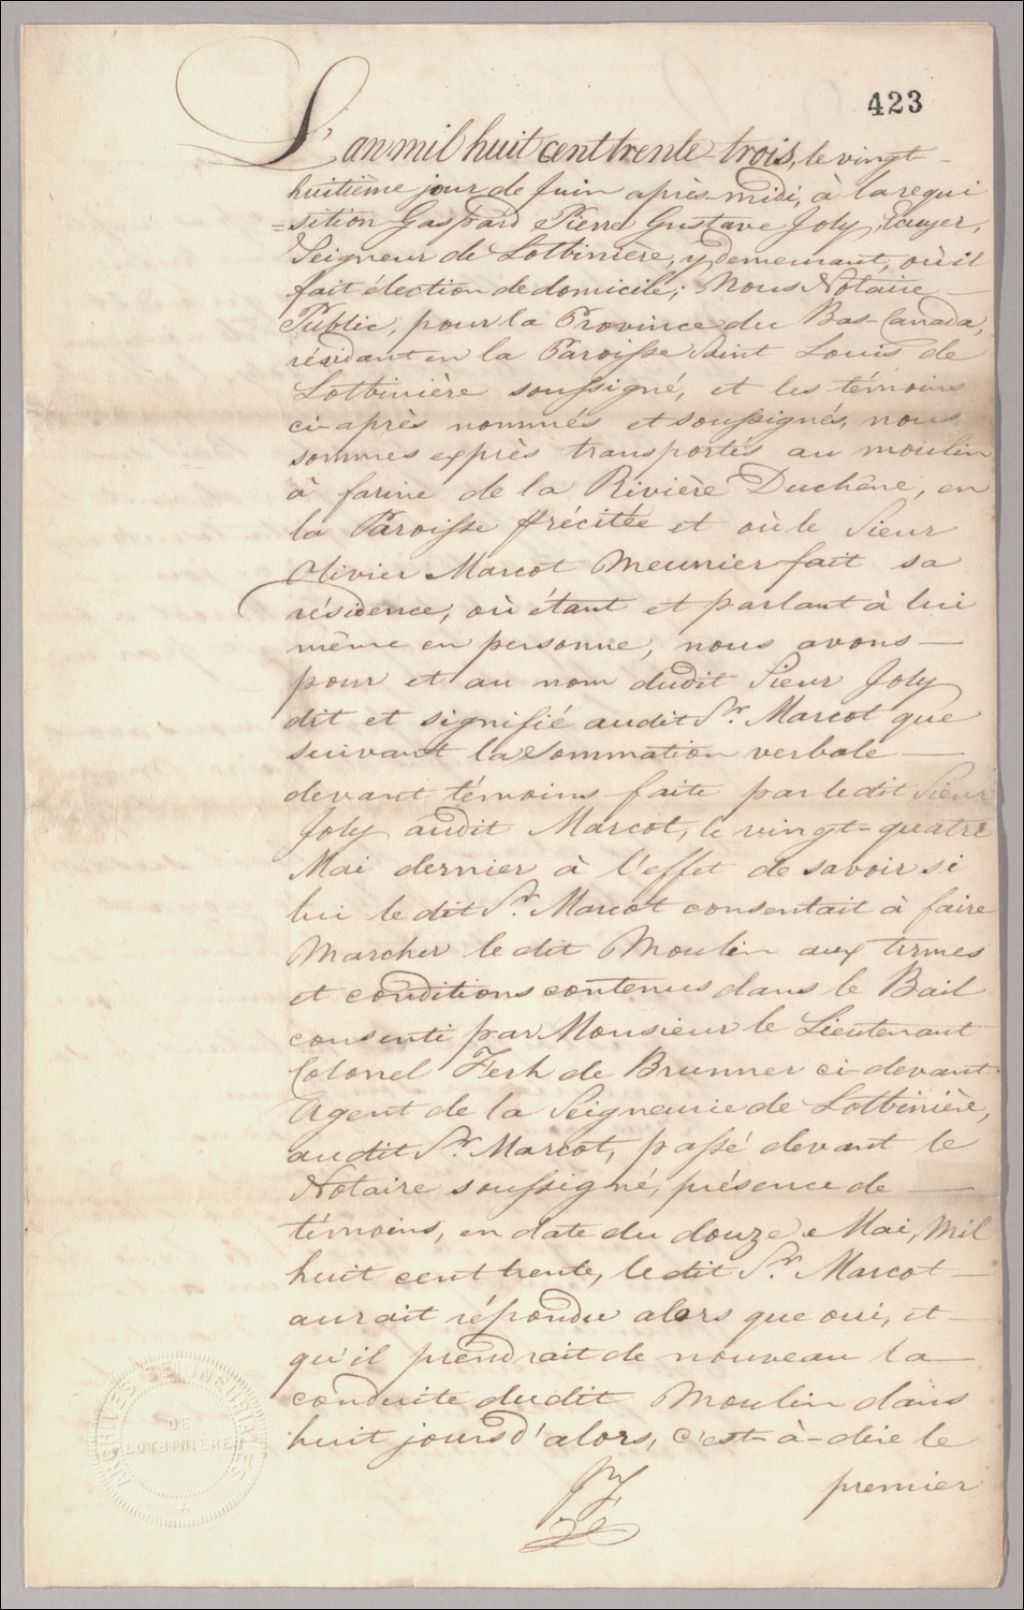 423
L'an mil huit cent trente-trois, le vingt-
huitième jour de Juin après-midi, à la requi
=sition Gaspard Pierre Gustave Joly, Ecuyer,
Seigneur de Lotbinière, y demeurant, où il
fait élection de domicile; Nous Notaire —
Public, pour la Province du Bas-Canada,
résidant en la Paroisse Saint Louis de
Lotbinière soussigné, et les témoins
ci-après nommés et soussignés, nous
sommes exprès transportés au moulin
à farine de la Rivière Duchêne, en
la Paroisse précitée et où le Sieur
Olivier Marcot Meunier fait sa
résidence, où étant et parlant à lui
même en personne, nous avons —
pour et au nom dudit Sieur Joly
dit et signifié audit Sr. Marcot que
suivant la sommation verbale —
devant témoins faite par ledit Sieur
Joly audit Marcot, le vingt-quatre
Mai dernier à l'effet de savoir si
lui le dit Sr. Marcot consentait à faire
Marcher le dit Moulin aux termes
et conditions contenus dans le Bail
consenti par Monsieur le Lieutenant
Colonel Ferh de Brunner ci-devant
Agent de la Seigneurie de Lotbinière,
audit Sr. Marcot, passé devant le
Notaire soussigné, présence de —
témoins, en date du douze Mai, Mil
huit cent trente, le dit Sr. Marcot —
aurait répondu alors que oui, et —
qu'il prendrait de nouveau la —
conduite dudit Moulin dans
huit jours d'alors, c'est-à-dire le
premier
ARCHIVES SEIGNEURIALES
DE
LOTBINIÈRE